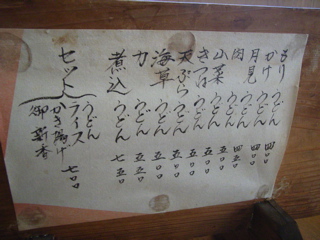 もりうどん 四〇〇
かけうどん 四〇〇
月見うどん 四五〇
肉うどん 五〇〇
山菜うどん 五〇〇
きつねうどん 五〇〇
天ぷらうどん 五〇〇
海草うどん 五五〇
力うどん 五五〇
煮込うどん 七五〇
セット うどん ライス かき揚げ 御新香 七〇〇